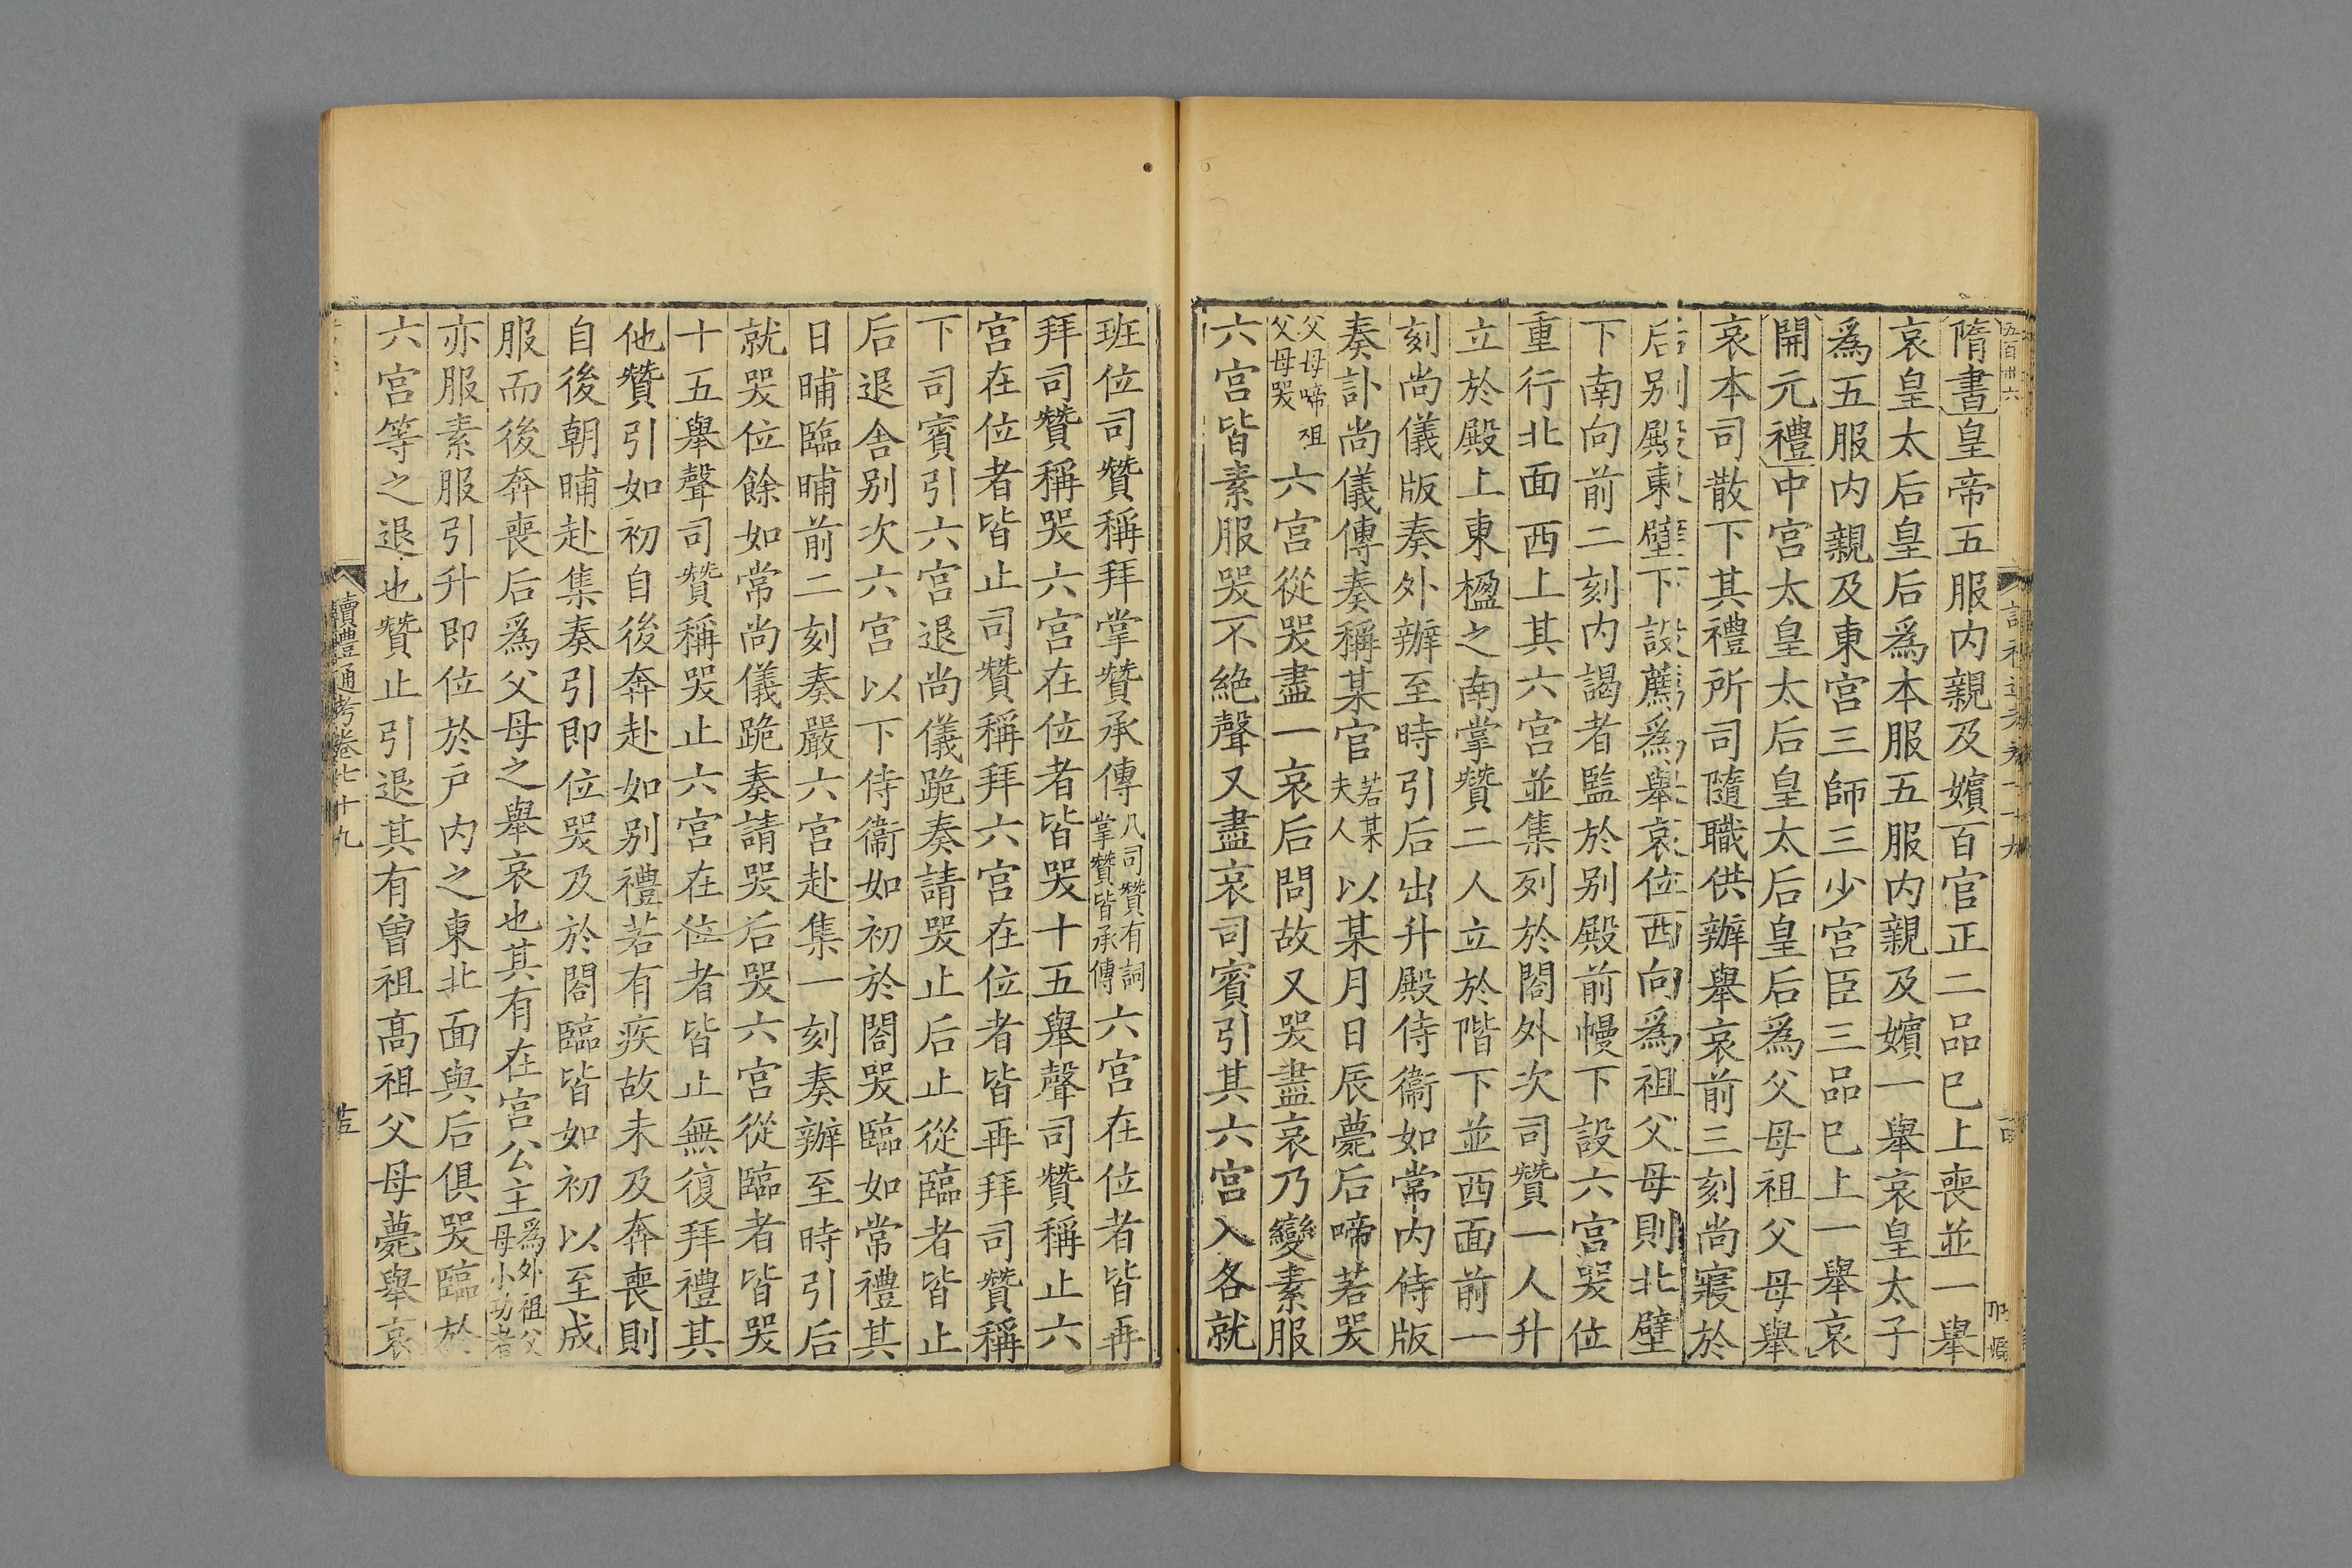 隋書皇帝五服内親及嬪百官正二品巳上喪並一舉
哀皇太后皇后爲本服五服内親及嬪一舉哀皇太子
爲五服内親及東宫三師三少宫臣三品巳上一舉哀
開元禮中宫太皇太后皇太后皇后爲父母祖父母舉
哀本司散下其禮所司隨職供辦舉哀前三刻尚寢於
后别殿東壁下設薦爲舉哀位西向爲祖父母則北壁
下南向前二刻内謁者監於别殿前幔下設六宫哭位
重行北面西上其六宫並集列於閤外次司贊一人升
立於殿上東楹之南掌贊二人立於階下並西面前一
刻尚儀版奏外辦至時引后出升殿侍衞如常内侍版
奏訃尚儀傳奏稱某官若某夫人以某月日辰薨后啼若哭
父母啼祖父母哭六宫從哭盡一哀后問故又哭盡哀乃變素服
六宫皆素服哭不絶聲又盡哀司賓引其六宫入各就
班位司贊稱拜掌贊承傳凡司贊有詞掌贊皆承傳六宫在位者皆再
拜司贊稱哭六宫在位者皆哭十五舉聲司贊稱止六
宫在位者皆止司贊稱拜六宫在位者皆再拜司贊稱
下司賓引六宫退尚儀跪奏請哭止后止從臨者皆止
后退舍别次六宫以下侍衞如初於閤哭臨如常禮其
日晡臨晡前二刻奏嚴六宫赴集一刻奏辦至時引后
就哭位餘如常尚儀跪奏請哭后哭六宫從臨者皆哭
十五舉聲司贊稱哭止六宫在位者皆止無復拜禮其
他贊引如初自後奔赴如别禮若有疾故未及奔喪則
自後朝晡赴集奏引即位哭及於閤臨皆如初以至成
服而後奔喪后爲父母之舉哀也其有在宫公主爲外祖父母小功者
亦服素服引升即位於戶内之東北面與后俱哭臨於
六宫等之退也贊止引退其有曾祖高祖父母薨舉哀
讀禮通考卷七十九